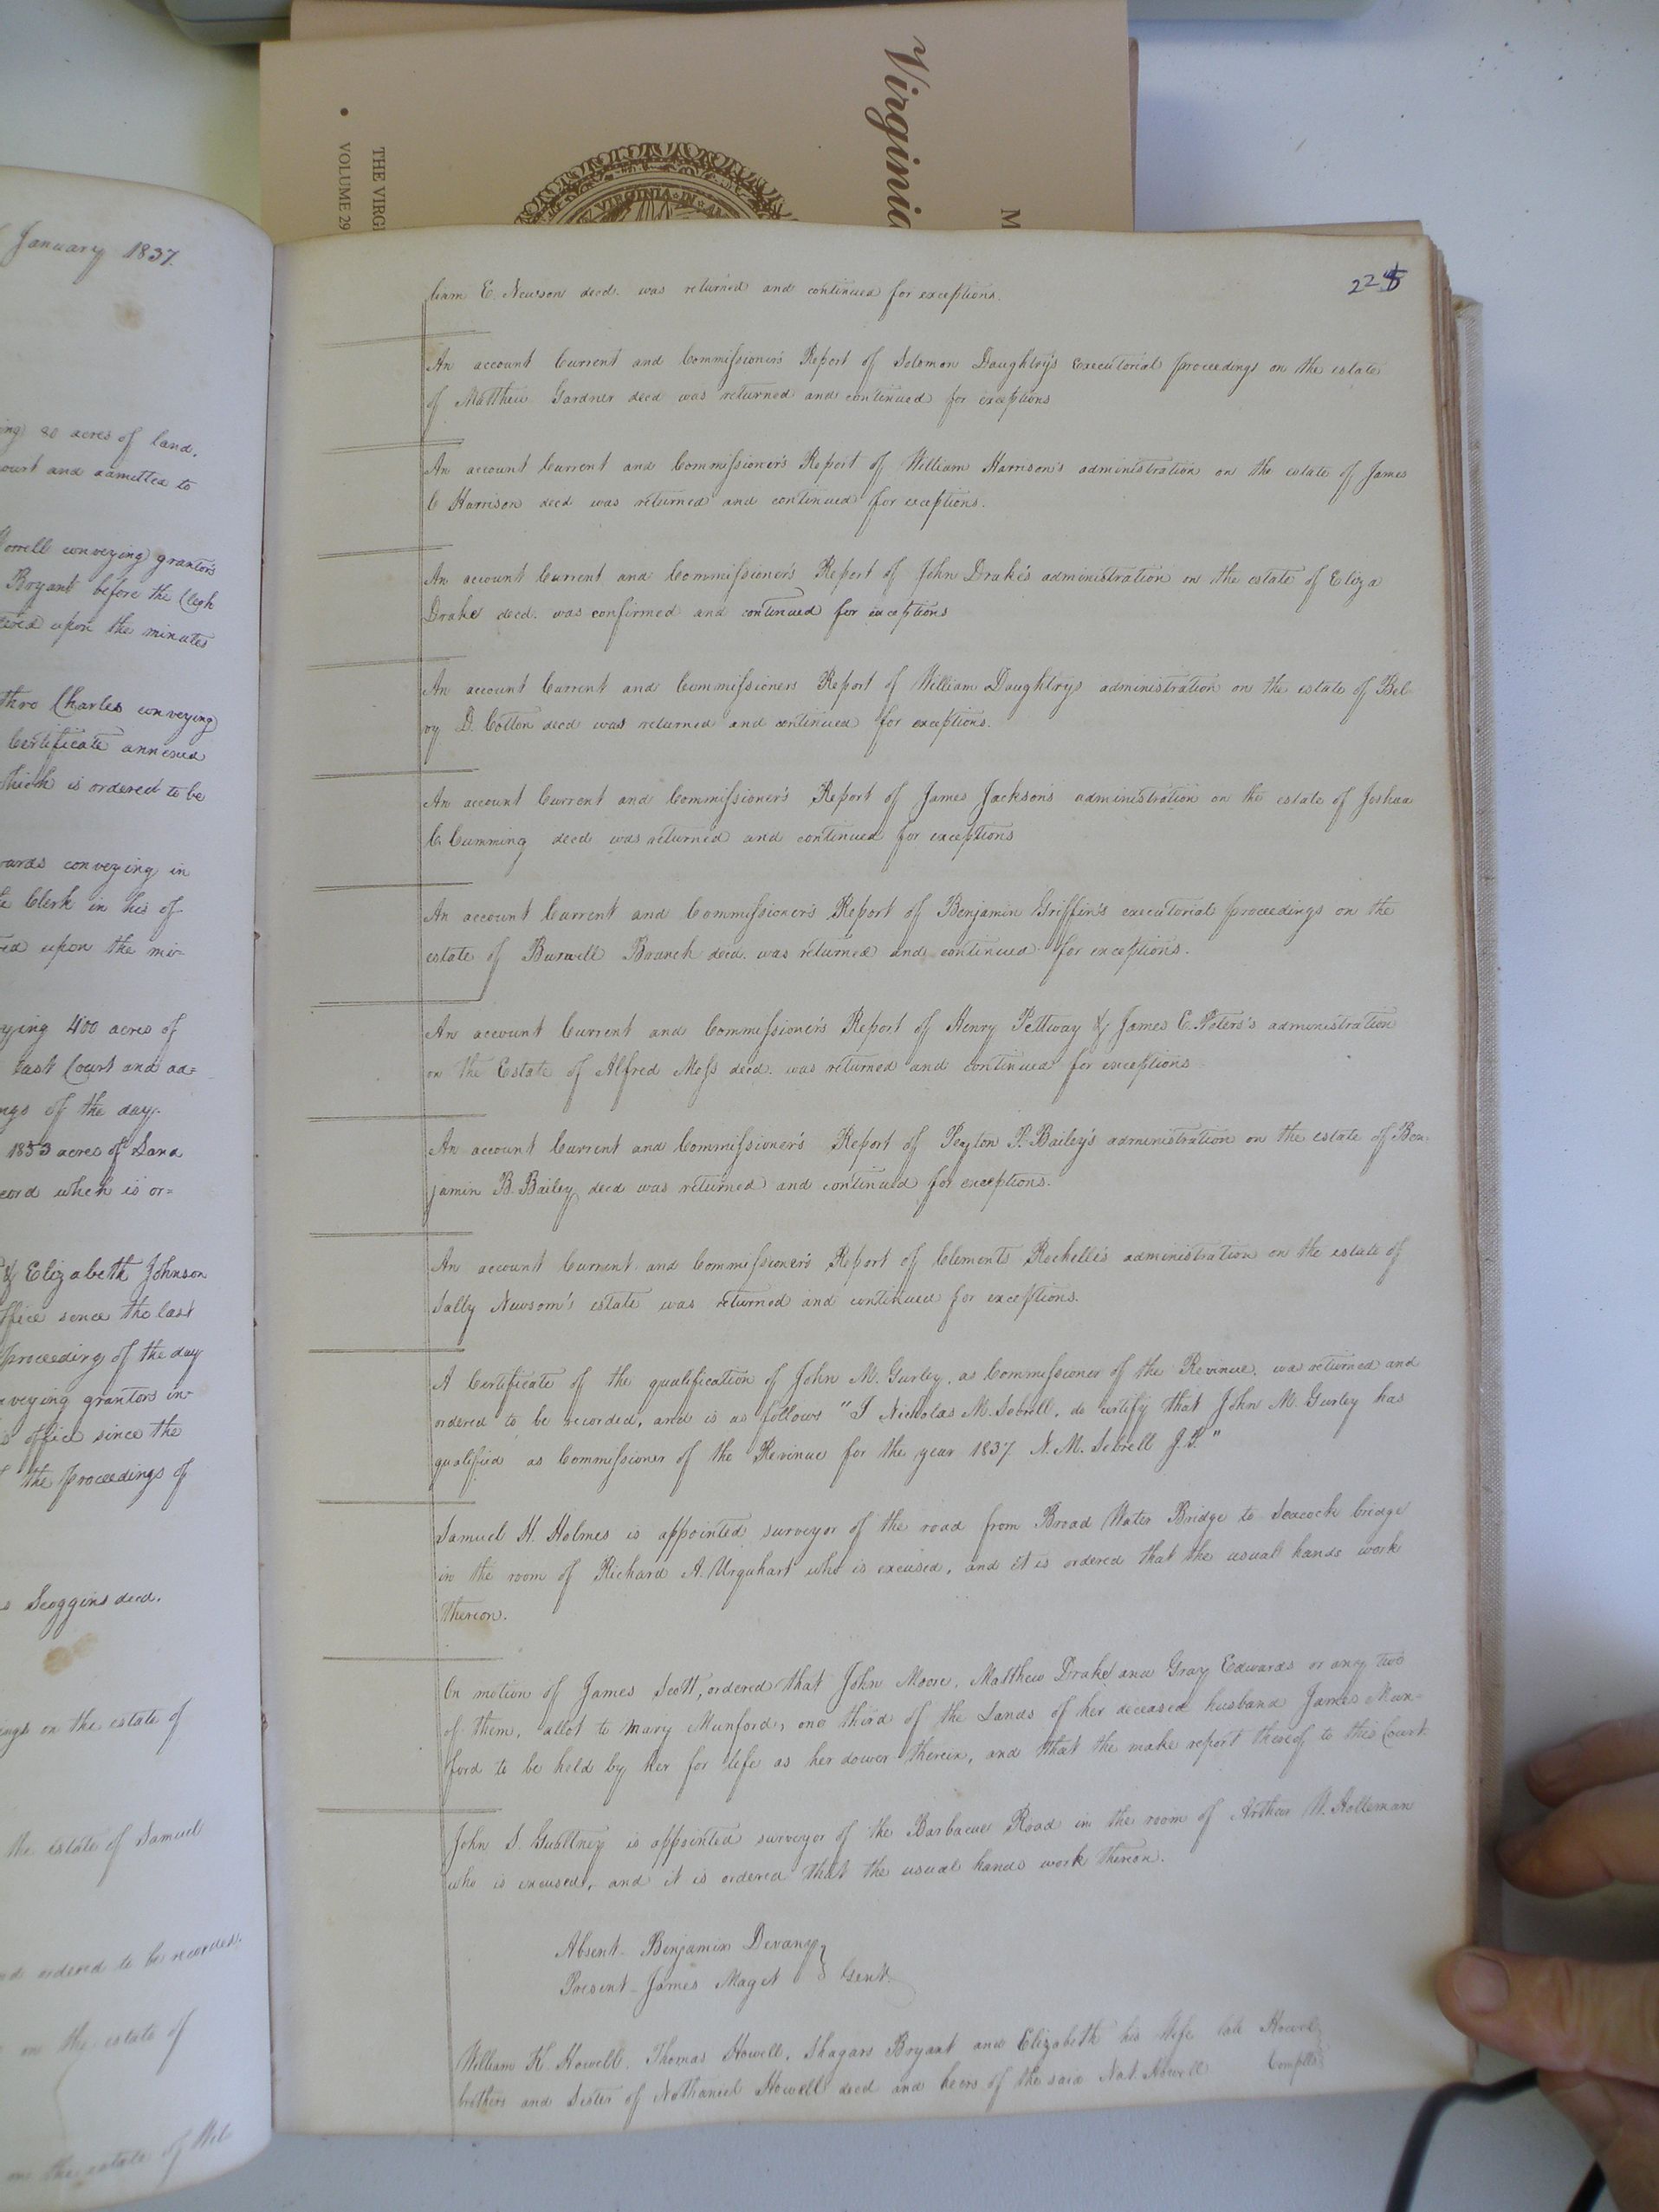 Virginia
M
THE VIRG
VOLUME 29
VIRGINIA IN
January 1837.
ing 80 acres of land.
ourt and admitted to
orrell conveying grantors
Bryant before the Clerk
upon the minutes
thro Charles conveying
Certificate annexed
which is ordered to be
wards conveying in
Clerk in his of
ed upon the mi-
ying 400 acres of
last Court and ad=
ngs of the day.
1833 acres of Land
cord which is or=
& Elizabeth Johnson
ffice since the last
proceeding of the day
nveying grantors in-
office since the
the proceedings of
Scoggins deed.
ings on the estate of
the estate of Samuel
nd ordered to be recorded.
on the estate of
on the estate of Wil
225
liam E. Newsom decd. was returned and continued for exceptions.
An account Current and Commissioner's Report of Solomon Daughtry's executorial proceedings on the estate
of Matthew Gardner decd was returned and continued for exceptions
An account Current and Commissioner's Report of William Harrison's administration on the estate of James
C Harrison decd was returned and continued for exceptions.
An account Current and Commissioner's Report of John Drake's administration on the estate of Eliza
Drake decd. was confirmed and continued for exceptions
An account Current and Commissioners Report of William Daughtrys administration on the estate of Bel-
vy D. Cotton decd was returned and continued for exceptions.
An account Current and Commissioner's Report of James Jackson's administration on the estate of Joshua
C. Cumming decd was returned and continued for exceptions
An account Current and Commissioner's Report of Benjamin Griffin's executorial proceedings on the
estate of Burwell Branch decd. was returned and continued for exceptions.
An account Current and Commissioner's Report of Henry Pettway & James E. Peters's administration
on the Estate of Alfred Moss decd. was returned and continued for exceptions
An account Current and Commissioner's Report of Peyton P. Bailey's administration on the estate of Ben-
jamin B. Bailey decd was returned and continued for exceptions.
An account Current and Commissioner's Report of Clements Rochelle's administration on the estate of
Sally Newsom's estate was returned and continued for exceptions.
A Certificate of the qualification of John M. Gurley, as Commissioner of the Revinue, was returned and
ordered to be recorded, and is as follows "I Nicholas M. Sebrell, do certify that John M. Gurley has
qualified as Commissioner of the Revinue for the year 1837 N. M. Sebrell J.P."
Samuel H. Holmes is appointed surveyor of the road from Broad Water Bridge to Seacock bridge
in the room of Richard A. Urquhart who is excused, and it is ordered that the usual hands work
thereon.
On motion of James Scott, ordered that John Moore, Matthew Drake and Gray Edwards or any two
of them, allot to Mary Munford, one third of the Lands of her deceased husband James Mun-
ford to be held by her for life as her dower therein, and that the make report thereof to this Court
John S. Gwaltney is appointed surveyor of the Barbacue Road in the room of Arthur W. Holleman
who is excused, and it is ordered that the usual hands work thereon.
Absent - Benjamin Devany
Present - James Maget } Gent.
William K. Howell, Thomas Howell, Bryant and Elizabeth his Wife late Howel
brothers and Sister of Nathaniel Howell decd and heirs of the said Nat. Howell Complts